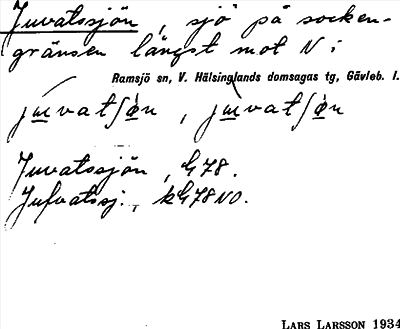 Juvatssjön, sjö på socken-
gränsen längst mot N i
Ramsjö sn, V. Hälsinglands domsagas tg, Gävleb. l.
Juvatssjön, G78.
Jufvatssj., kG78NO.
LARS LARSSON 1934